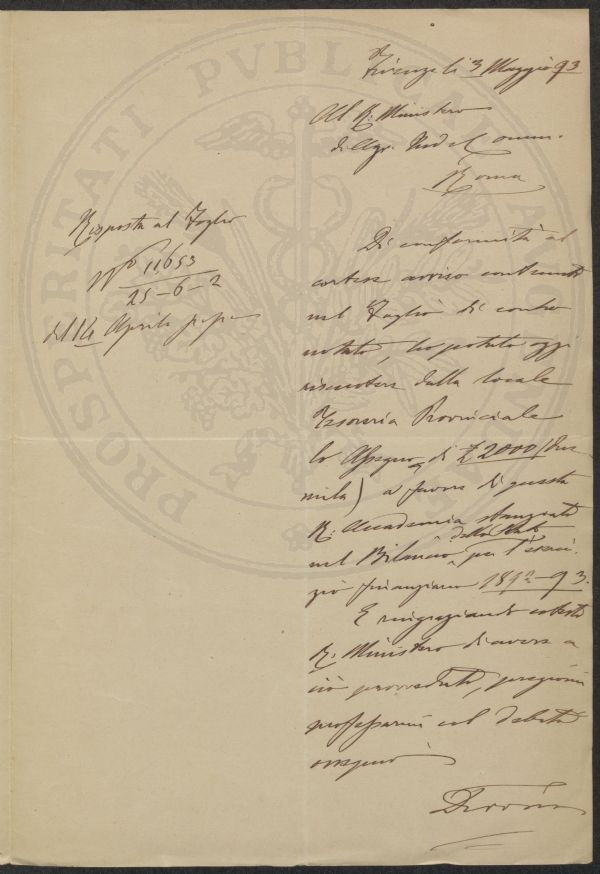 Firenze li 3 Maggio 93
Al R. Ministero
di Agr. Ind e Comm.
Roma
Risposta al Foglio
N° 11653
25-6-2
del 14 Aprile pp
Di conformità al
cortese avviso contenuto
nel Foglio di contro
notato, ho potuto oggi
riscuotere dalla locale
Tesoreria Provinciale
lo Assegno di £ 2000 (Due
mila) a favore di questa
R. Accademia stanziato
nel Bilancio dello Stato per l'eserci-
zio finanziario 1892-93.
E ringraziando codesto
R. Ministero di avere a
ciò provveduto, pregiomi
professarmi col debito
ossequio
PROSPERITATI PVBLICAE